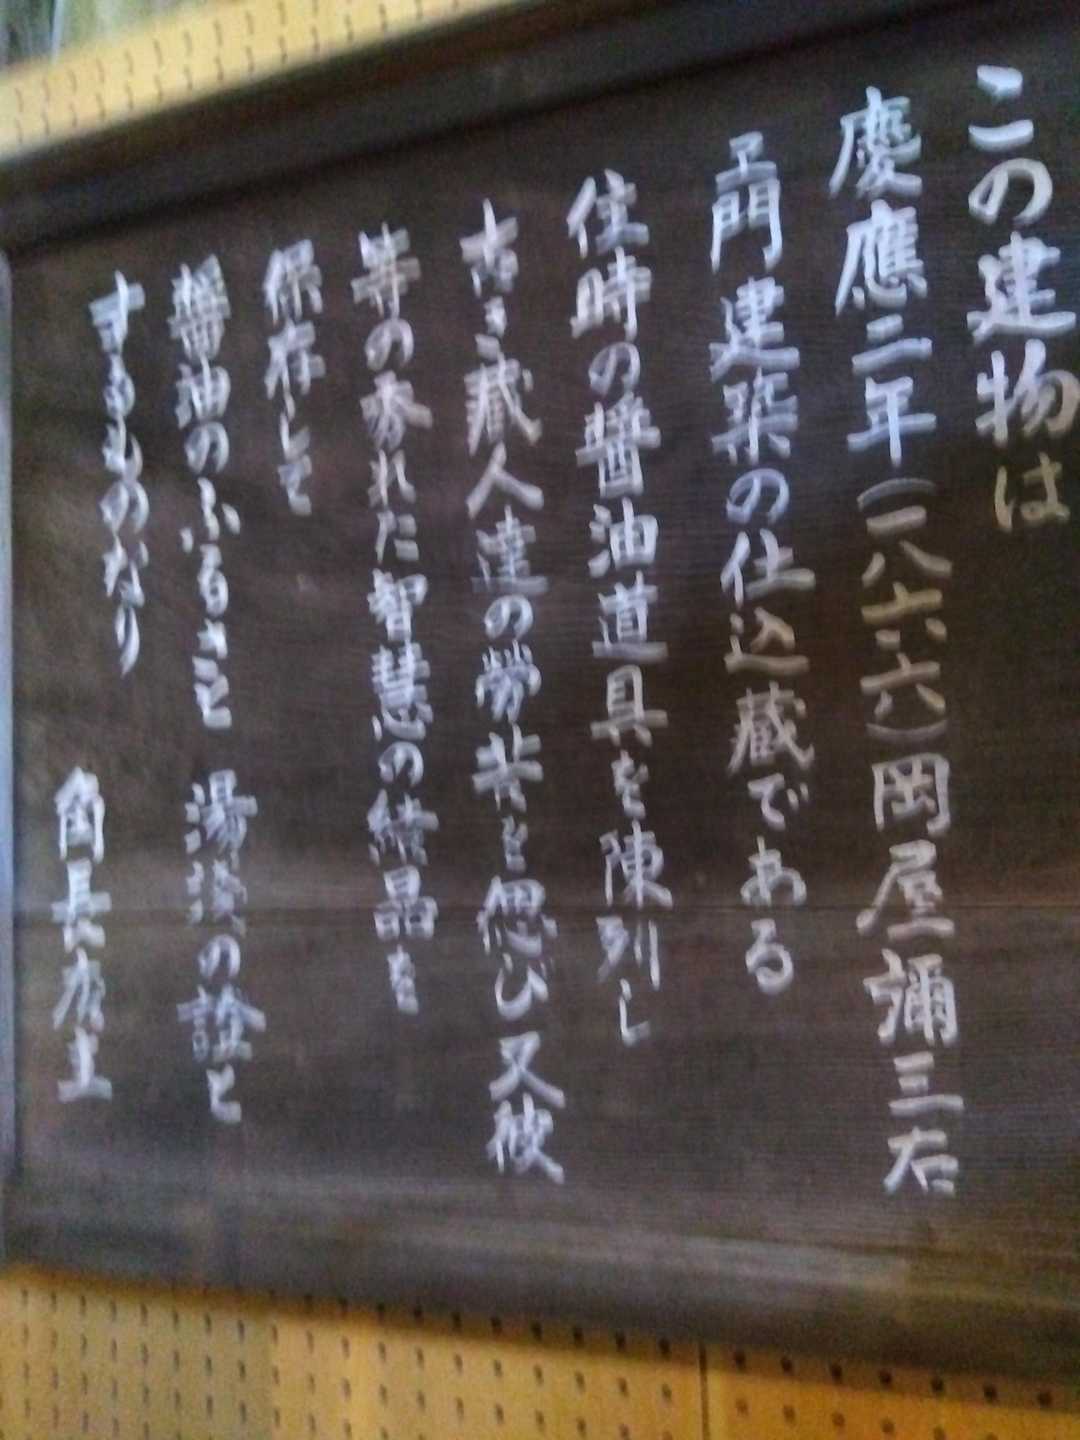 この建物は
慶應二年(一八六六)岡屋彌三右
ヱ門建築の仕込蔵である
往時の醬油道具を陳列し
古き蔵人達の勞苦を偲び又彼
等の秀れた智慧の結晶を
保存して
醬油のふるさと 湯淺の證と
するものなり
角長店主